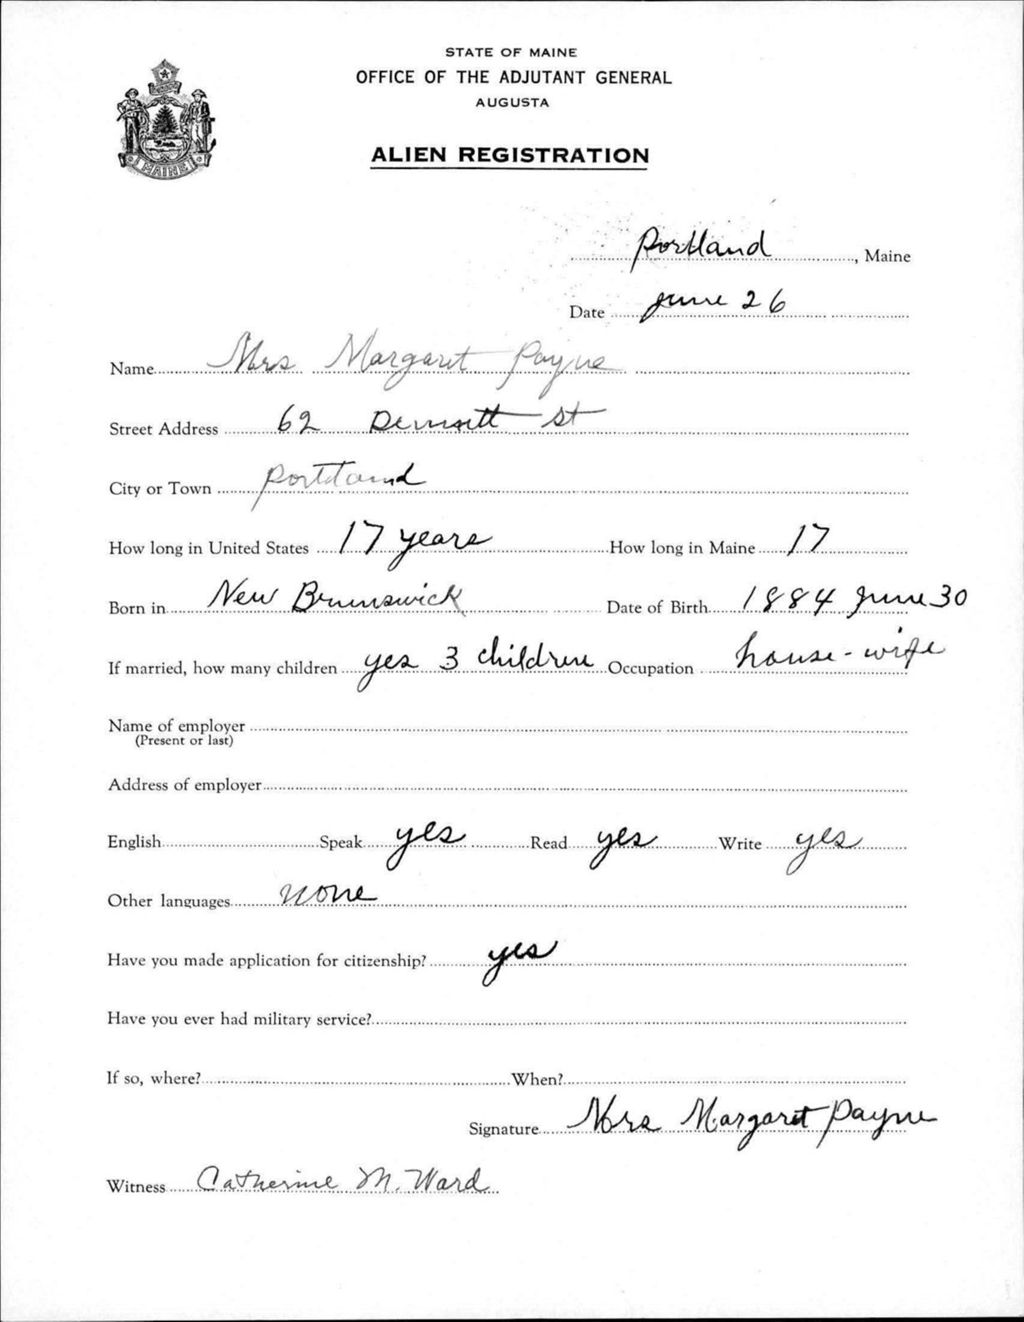 STATE OF MAINE
OFFICE OF THE ADJUTANT GENERAL
AUGUSTA
ALIEN REGISTRATION
MAINE
Portland, Maine
Date June 26
Name Mrs Margaret Payne
Street Address 62 St
City or Town Portland
How long in United States 17 years How long in Maine 17
Born in New Brunswick Date of Birth 1884 June 30
If married, how many children yes 3 children Occupation house-wife
Name of employer
(Present or last)
Address of employer
English Speak yes Read yes Write yes
Other languages none
Have you made application for citizenship? yes
Have you ever had military service?
If so, where? When?
Signature Mrs Margaret Payne
Witness Catherine M. Ward